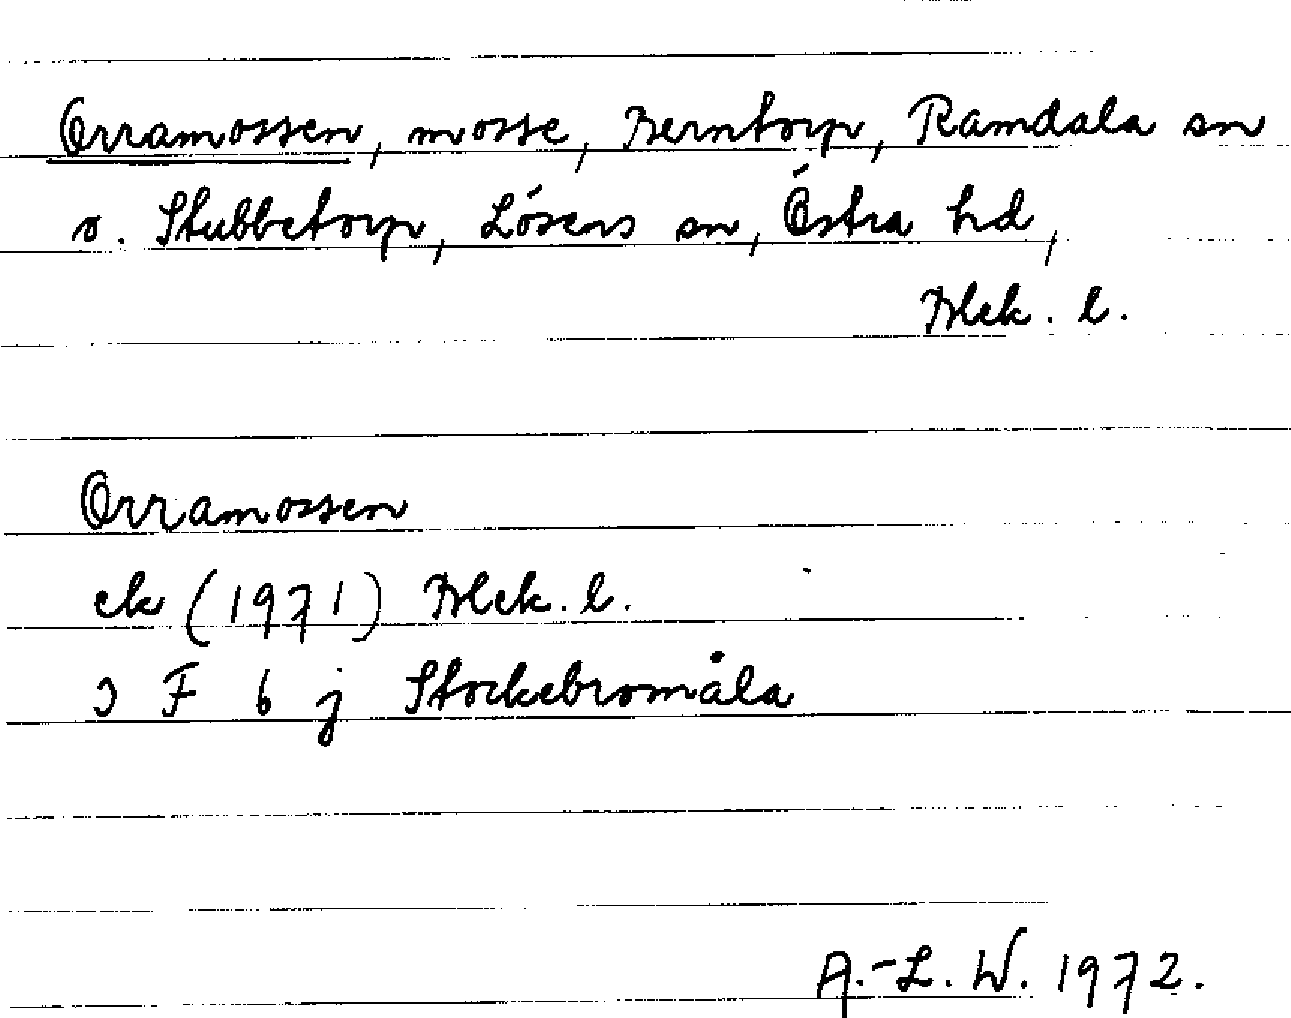 Orramossen, mosse, Berntorp, Ramdala sn
o. Stubbetorp, Lösens sn, Östra hd,
Blek. l.
Orramossen
ek (1971) Blek. l.
3 F 6 j Stockebromåla
A.-L. W. 1972.